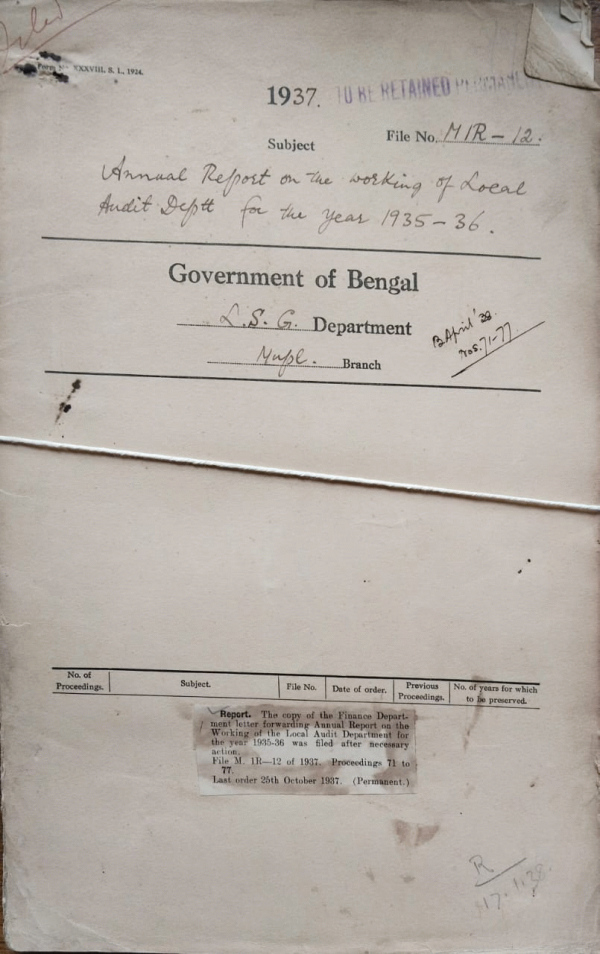 Filed
Form No XXXVIII. S. I., 1924.
1937. TO BE RETAINED
Subject
File No. M1R - 12.
Annual Report on the working of Local
Audit Deptt for the year 1935-36.
Government of Bengal
L.S.G. Department
Mupl. Branch
B April '38
Nos. 71-77.
No. of Proceedings. | Subject. | File No. | Date of order. | Previous Proceedings. | No. of years for which to be preserved.
Report. The copy of the Finance Depart-
ment letter forwarding Annual Report on the
Working of the Local Audit Department for
the year 1935-36 was filed after necessary
action.
File M. 1R—12 of 1937. Proceedings 71 to
77.
Last order 25th October 1937. (Permanent.)
R
17.1.38.